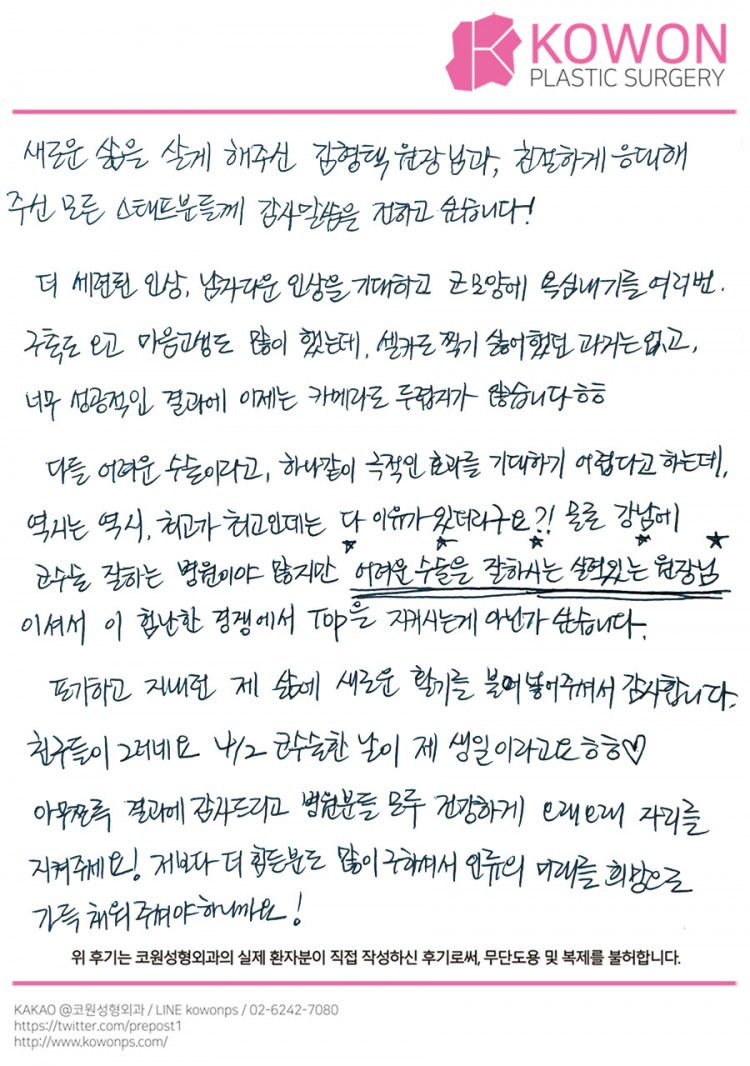 KOWON
PLASTIC SURGERY
새로운 삶을 살게 해주신 김형택 원장님과, 친절하게 응대해
주신 모든 스태프분들께 감사말씀을 전하고 싶습니다!
더 세련된 인상, 남자다운 인상을 기대하고 코모양에 욕심내기를 여러번.
구축도 오고 마음고생도 많이 했는데, 셀카도 찍기 싫어했던 과거는 없고,
너무 성공적인 결과에 이제는 카메라도 두렵지가 않습니다ㅎㅎ
다들 어려운 수술이라고, 하나같이 극적인 효과를 기대하기 어렵다고 하는데,
역시는 역시, 최고가 최고인데는 다 이유가 있더라구요?! 물론 강남에
코수술 잘하는 병원이야 많지만 어려운 수술을 잘하시는 실력있는 원장님
이셔서 이 험난한 경쟁에서 Top을 지키시는게 아닌가 싶습니다.
포기하고 지내던 제 삶에 새로운 활기를 불어넣어주셔서 감사합니다.
친구들이 그러네요 4/2 코수술한 날이 제 생일이라고요ㅎㅎ♡
아무쪼록 결과에 감사드리고 병원분들 모두 건강하게 오래오래 자리를
지켜주세요! 저보다 더 힘든분도 많이 구하셔서 인류의 미래를 희망으로
가득 채워주셔야하니까요!
위 후기는 코원성형외과의 실제 환자분이 직접 작성하신 후기로써, 무단도용 및 복제를 불허합니다.
KAKAO @코원성형외과 / LINE kowonps / 02-6242-7080
https://twitter.com/prepost1
http://www.kowonps.com/